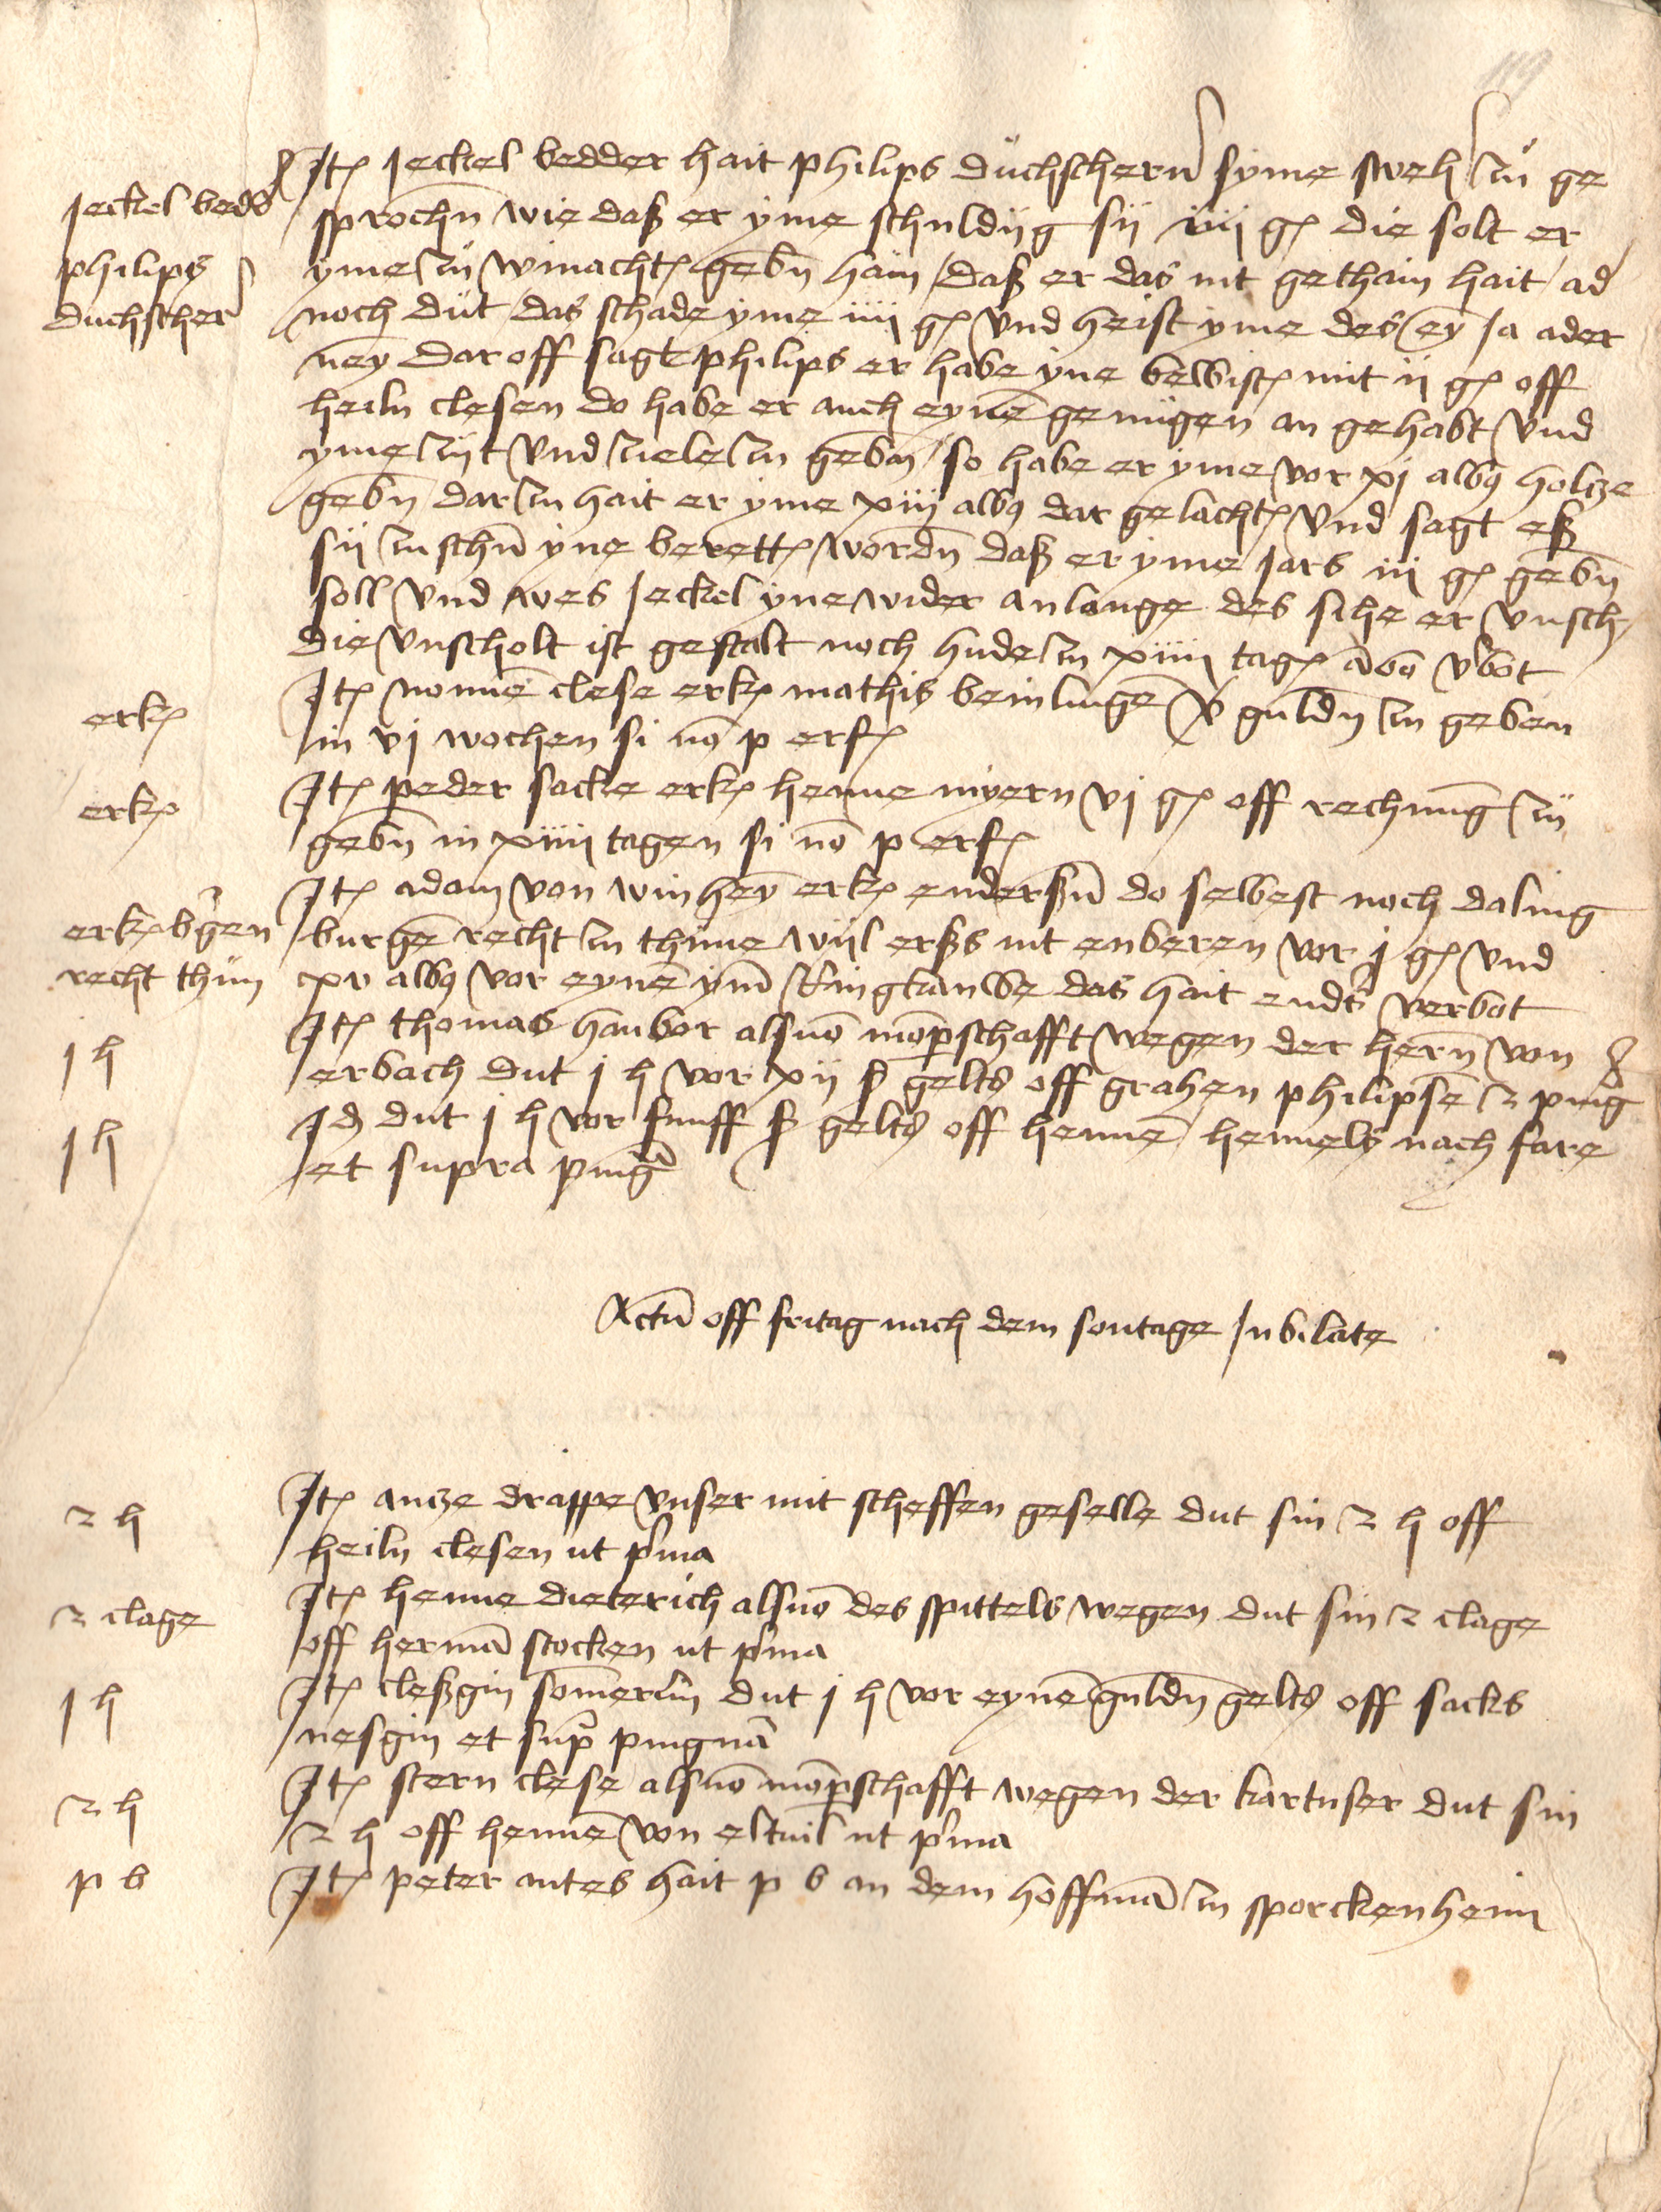 119
Jeckel bedd(er)
philips
duchscher
Jt(em) Jeckel bedder hait philips duchschern syme sweh(er) zu ge
sprochn̄ wie daß er yme schuldijg sij iiij g(ulden) die solt er
yme zu winacht(en) gebn̄ hain / daß er das nit gethain hait / ad(er)
noch dut / das schade yme iiij g(ulden) vnd heist yme des ey(n) Ja ader
ney(n) dar off sagt philips er habe yne bewist mit ij g(ulden) off
heiln clesen do habe er auch eynē genugen an gehabt vnd
yme zijt vnd ziele zu gebn̄ / so habe er yme vor xj alb(us) holtze
gebn̄ dar zu hait er yme xiij alb(us) dar gelacht(en) vnd sagt eß
sij zuschn̄ yne berett(en) wordn̄ daß er yme Jars iij g(ulden) gebn̄
soll vnd wes Jeckel yne wider anlange des sihe er vnsch(uldig)
die vnscholt ist gestalt noch hude zu xiiij tag(en) ambo v(er)bot
erk(ennt)
Jt(em) nonnē clese erk(ennt) mathis beinlingē x guldn̄ zu geben
in vj wochen si nō p erf(olgt)
erk(ennt)
Jt(em) peder sacke erk(ennt) henne myern vj g(ulden) off rechnūg zu
gebn̄ in xiiij tagen si nō p erf(olgt)
erk(ennt) b(ur)gen
recht thun
Jt(em) adam von winhey(m) erk(ennt) enderßn̄ do selbest noch daling
burgē recht zu thune wijl erßs nit enberen vor j g(ulden) vnd
xv alb(us) vor eynē ym̄ Ringkaube das hait end(er)s verbot
j h
Jt(em) thomas haubor als vō mōperschafft wegen der hern̄ von
erbach dut j h vor xij ß gelts off grahen philipsē z pnīg
j h
Jd(em) dut j h vor funff ß gelts off hennē hennels nach fare
et supra pnīg
Actū off fritag nach dem sontage Jubilate
2 h
Jt(em) antze drappe vnser mit scheffen geselle dut sin 2 h off
heiln clesen ut p(ri)ma
2 clage
Jt(em) henne dieterich als vō des spittels wegen dut sin 2 clage
off hermā stocken ut p(ri)ma
j h
Jt(em) cleßgin sōmerān dut j h vor eynē guldn̄ gelts off sacks
nesgin et sup(ra) pingnā
2 h
Jt(em) stern clese als vō mōperschafft wegen der kartuser dut sin
2 h off hennē von eltuil ut p(ri)ma
p b
Jt(em) peter antes hait p b an dem hoffmā zu sporckenheim